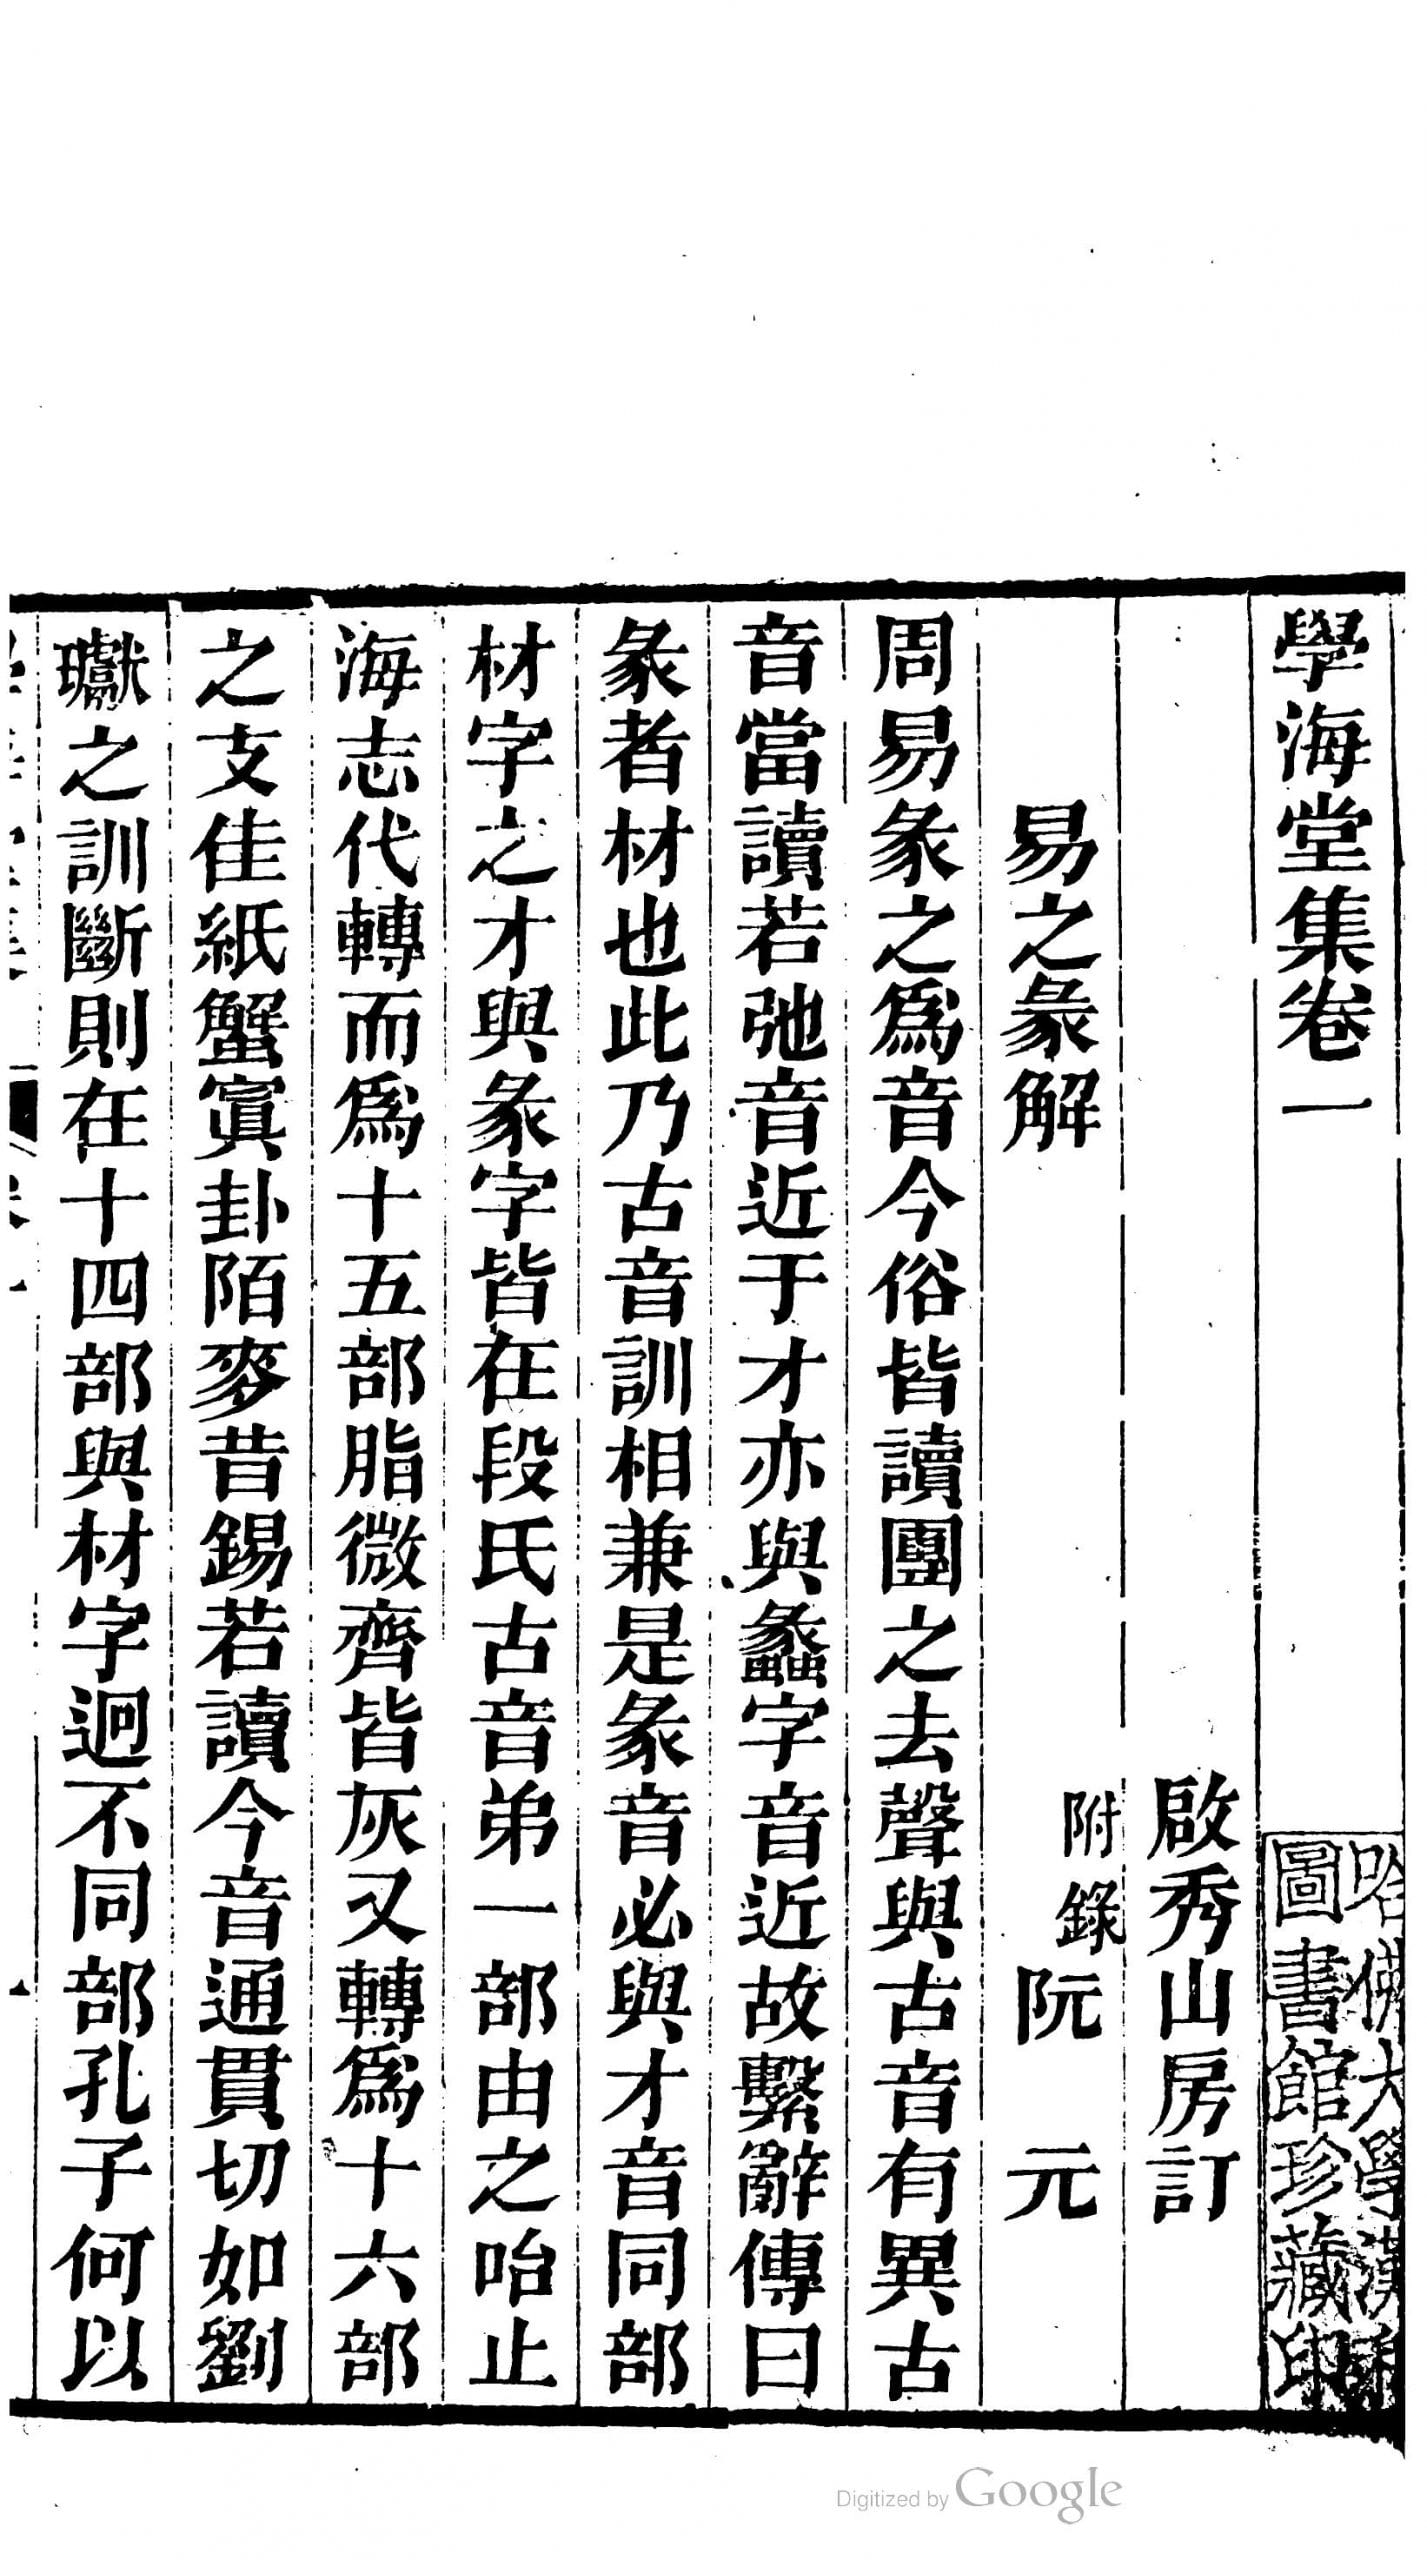 學海堂集卷一
啟秀山房訂
易之彖解
附錄
阮元
周易彖之爲音今俗皆讀團之去聲與古音有異古
音當讀若弛音近于才亦與蠡字音近故繫辭傳曰
彖者材也此乃古音訓相兼是彖音必與才音同部
材字之才與彖字皆在段氏古音弟一部由之咍止
海志代轉而爲十五部脂微齊皆灰又轉爲十六部
之支佳紙蟹寘卦陌麥昔錫若讀今音通貫切如劉
瓛之訓斷則在十四部與材字迥不同部孔子何以
哈佛大學漢和
圖書館珍藏印
Digitized by Google